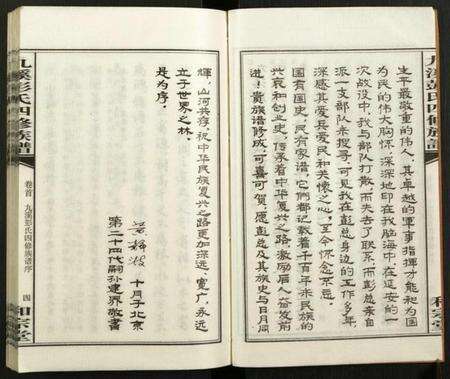 九溪彭氏四修族譜
和宗堂
生平最敬重的伟人，其卓越的軍事指挥才能和为国
为民的伟大胸怀，深深地印在我脑海中在延安的一
次战役中，我与部队打散，而失去了联系，而彭总亲自
派一支部队来搜寻。可见我在彭总身边的工作多年，
深感其爱兵爱民和关懷之心，至今怀念不忘。
国有国史，民有家谱，它們都记載着千百年来民族的
兴衰和创业史，传承着中华复兴之路，激励后人益发前
进！贵族谱修成，可喜可贺，愿彭总及其族史与日月同
輝，山河共存，祝中华民族复兴之路更加深远，宽广，永远
立于世界之林。
是为序：
十月于北京
第二十四代嗣孙建界敬書
九溪彭氏四修族譜
卷首 九溪彭氏四修族谱序
四
和宗堂